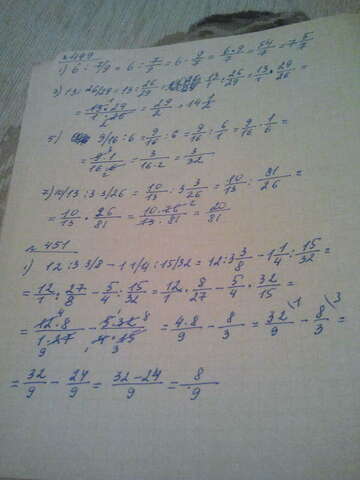 № 449
1) 6 : 7/9 = 6 : 7/9 = 6 · 9/7 = 6·9/7 = 54/7 = 7 5/7
3) 13 : 26/29 = 13 : 26/29 = 13/1 : 26/29 = 13/1 · 29/26 =
= 13·29/1·26 = 29/2 = 14 1/2
5) 9/16 : 6 = 9/16 : 6 = 9/16 : 6/1 = 9/16 · 1/6 =
= 9·1/16·6 = 3/16·2 = 3/32
7) 10/13 : 3 3/26 = 10/13 : 3 3/26 = 10/13 : 81/26 =
= 10/13 · 26/81 = 10·26/13·81 = 20/81
№ 451
1) 12 : 3 3/8 - 1 1/4 : 15/32 = 12 : 3 3/8 - 1 1/4 : 15/32 =
= 12/1 : 27/8 - 5/4 : 15/32 = 12/1 · 8/27 - 5/4 · 32/15 =
= 12·8/1·27 - 5·32/4·15 = 4·8/9 - 8/3 = 32/9 - 8/3 =
= 32/9 - 24/9 = 32-24/9 = 8/9